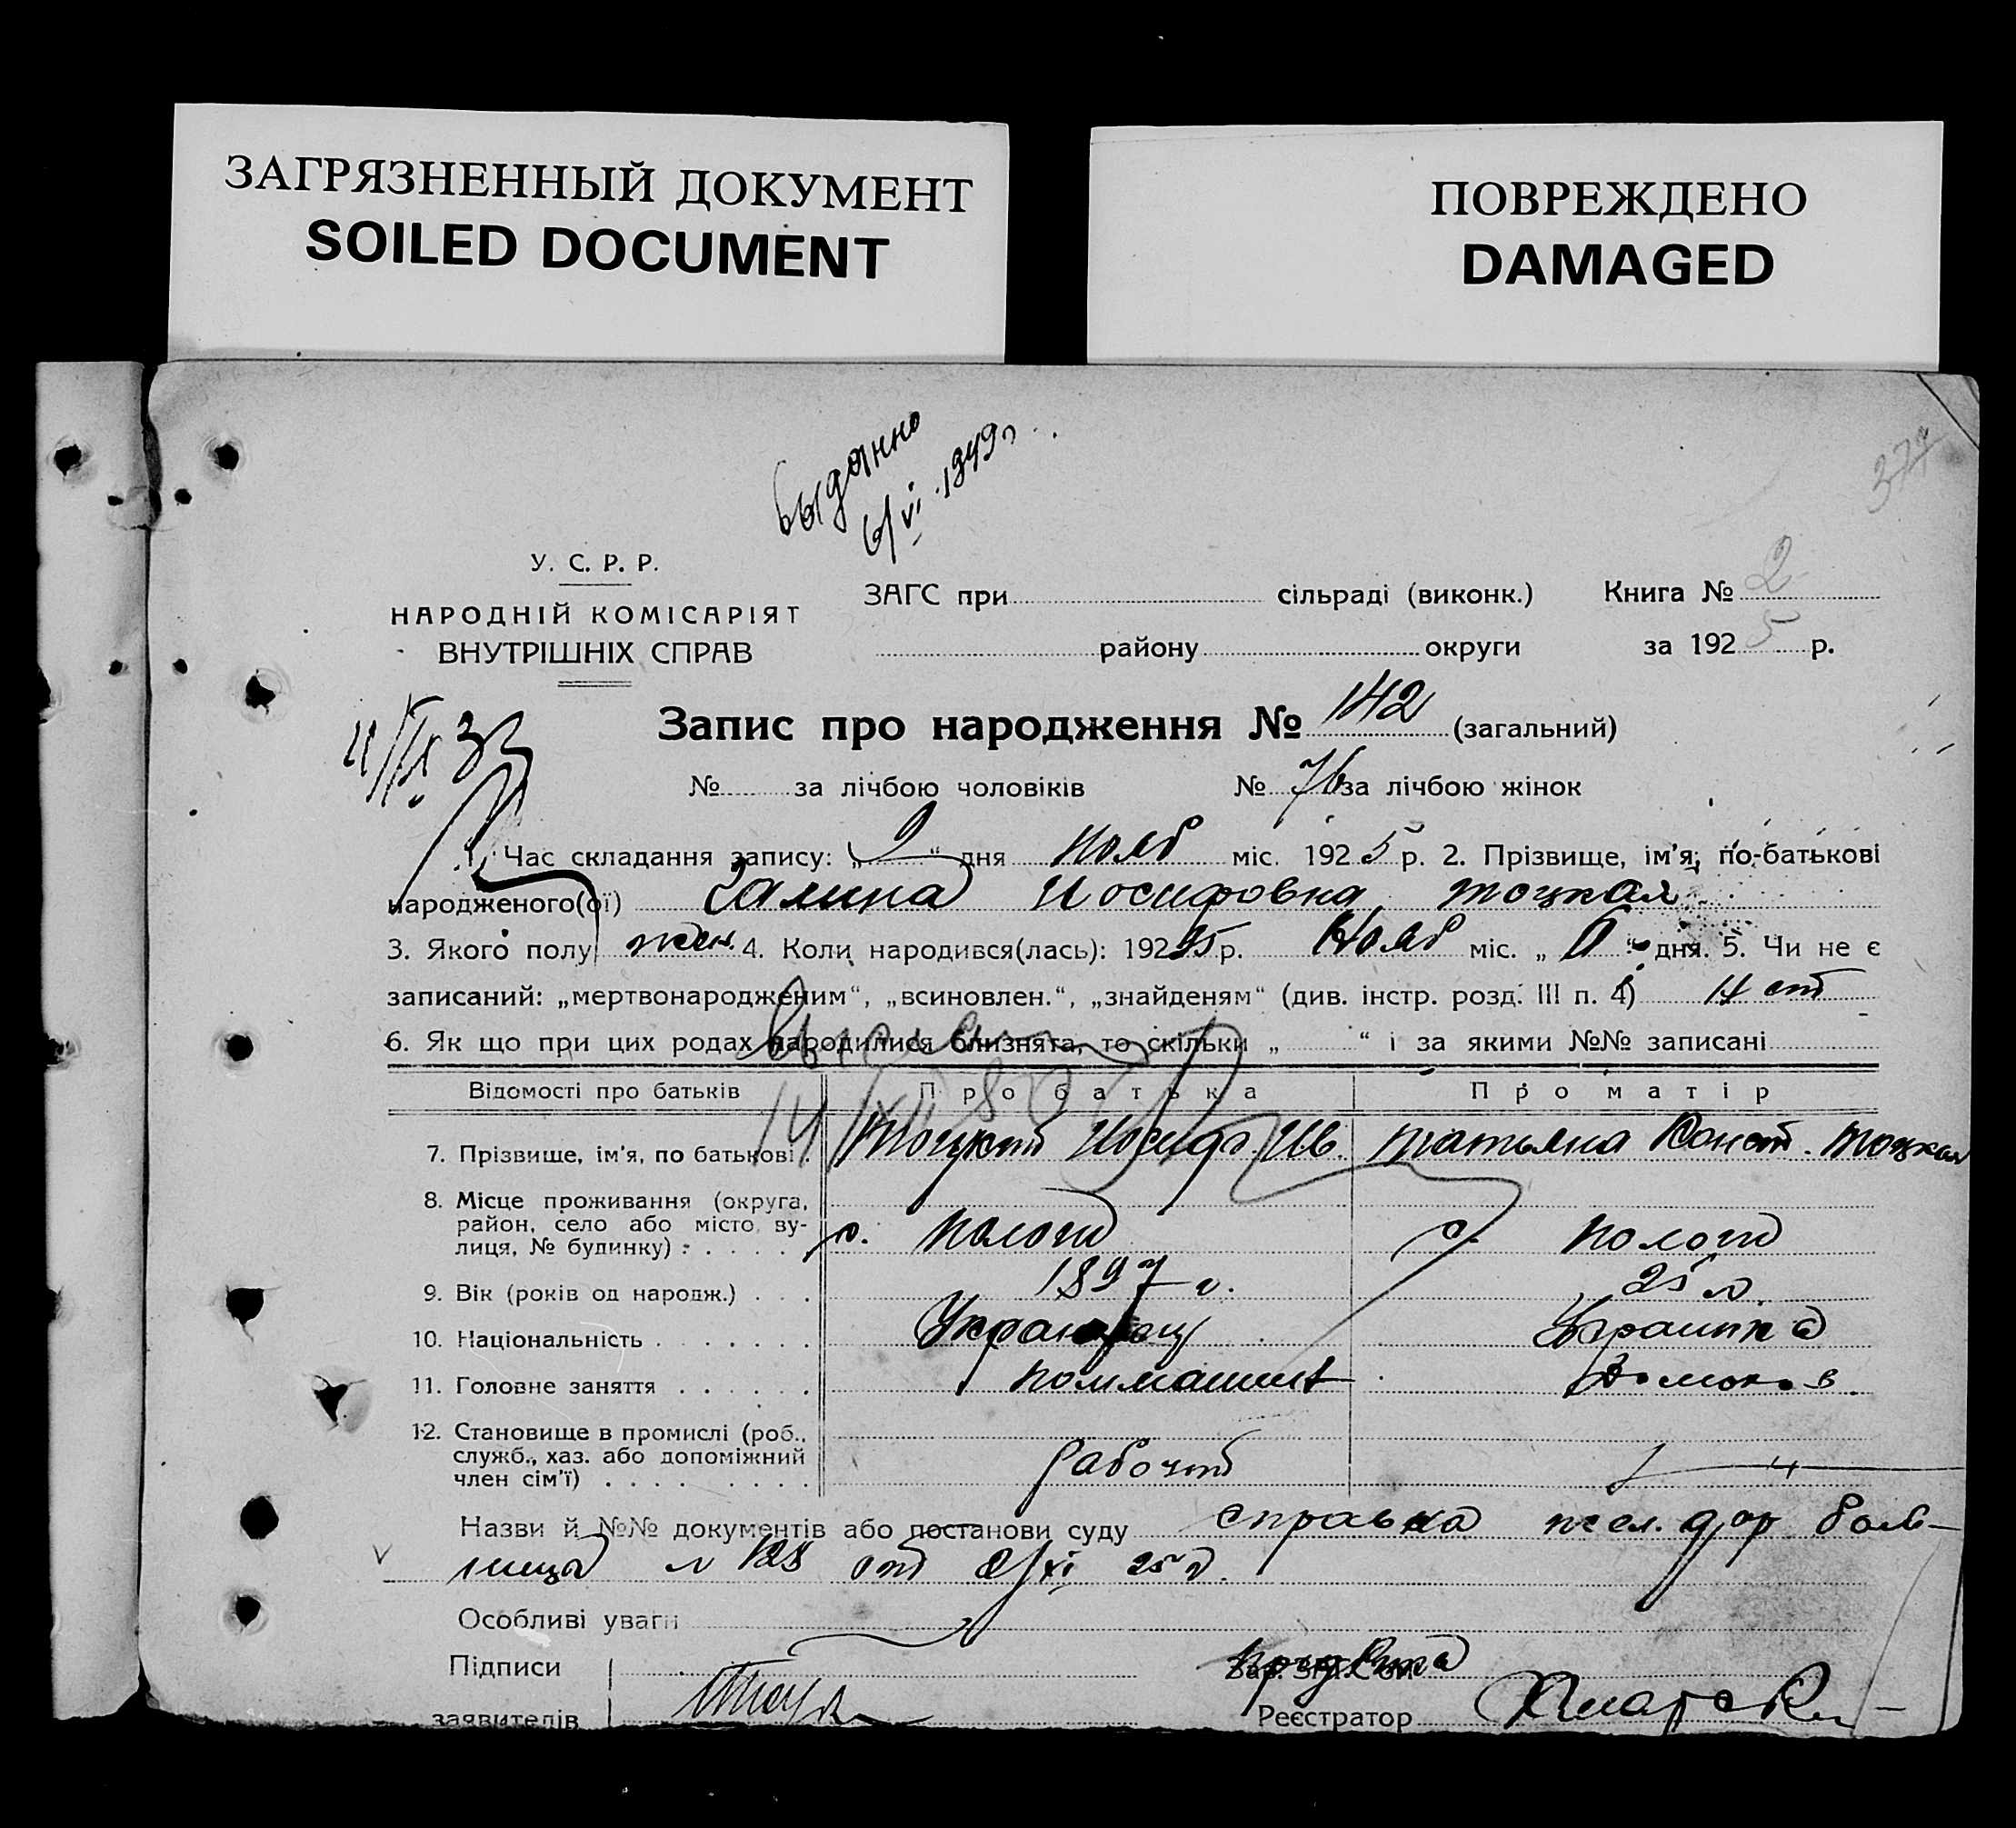 ЗАГРЯЗНЕННЫЙ ДОКУМЕНТ
SOILED DOCUMENT
ПОВРЕЖДЕНО
DAMAGED
377
выданно
6/VI 1949 г
У. С. Р. Р.
НАРОДНІЙ КОМІСАРІЯТ
ВНУТРІШНІХ СПРАВ
ЗАГС при сільраді (виконк.) Книга № 2
району округи за 1925 р.
Запис про народження № 142 (загальний)
№ за лічбою чоловіків № 76 за лічбою жінок
1. Час складання запису: „9“ дня нояб міс. 1925 р. 2. Прізвище, ім'я, по-батькові
народженого(ої) Галина Иосифовна Тоцкая
3. Якого полу жен. 4. Коли народився(лась): 1925 р. Нояб міс. „6“ дня. 5. Чи не є
записаний: „мертвонародженим“, „всиновлен.“, „знайденям“ (див. інстр. розд. III п. 4)
6. Як що при цих родах народилися близнята, то скільки „ “ і за якими №№ записані
Відомості про батьків Про батька Про матір
7. Прізвище, ім'я, по батькові Тоцкий Иосиф Ив. Татьяна Конст. Тоцкая
8. Місце проживання (округа,
район, село або місто, ву-
лиця, № будинку) с. Пологи с. Пологи
9. Вік (років од народж.) 1897 г. 25 л.
10. Національність Украинец Украинка
11. Головне заняття поммашин Домохоз.
12. Становище в промислі (роб.,
служб., хаз. або допоміжний
член сім'ї) рабочий
Назви й №№ документів або постанови суду справка жел. дор боль-
ницы № 128 от 9/XI 25 г.
Особливі уваги
Підписи
заявителів
Реєстратор